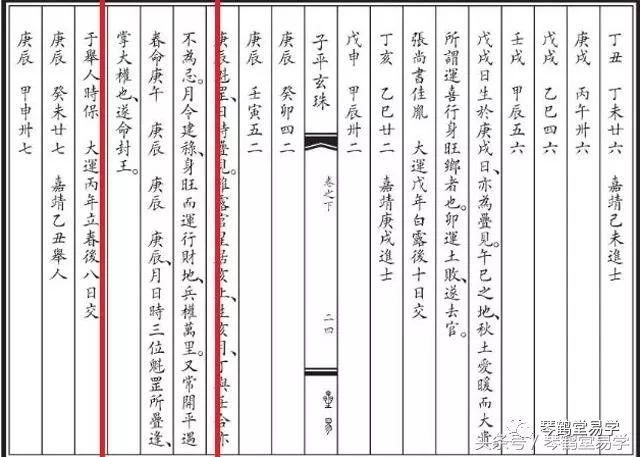 丁丑 丁未廿六 嘉靖己未進士
庚戌 丙午卅六
戊戌 乙巳四六
壬戌 甲辰五六
戊戌日生於庚戌日、亦為疊見。午巳之地、秋土愛暖而大貴
所謂運喜行身旺鄉者也。卯運土敗、遂去官。
張尚書佳胤 大運戊年白露後十日交
丁亥 乙巳廿二 嘉靖庚戌進士
戊申 甲辰卅二
子平玄珠 卷之下 二四
庚辰 癸卯四二
庚辰 壬寅五二
庚辰魁罡、日時疊見。雖露官星居亥上、生亥月、丁與壬合亦
不為忌。月令建祿、身旺而運行財地、兵權萬里。又常開平遇
春命庚午 庚辰 庚辰 庚辰、月日時三位魁罡所疊逢、
掌大權也、遂命封王。
于舉人時保 大運丙年立春後八日交
庚辰 癸未廿七 嘉靖乙丑舉人
庚辰 甲申卅七
琴鹤堂易学
头条号/琴鹤堂易学